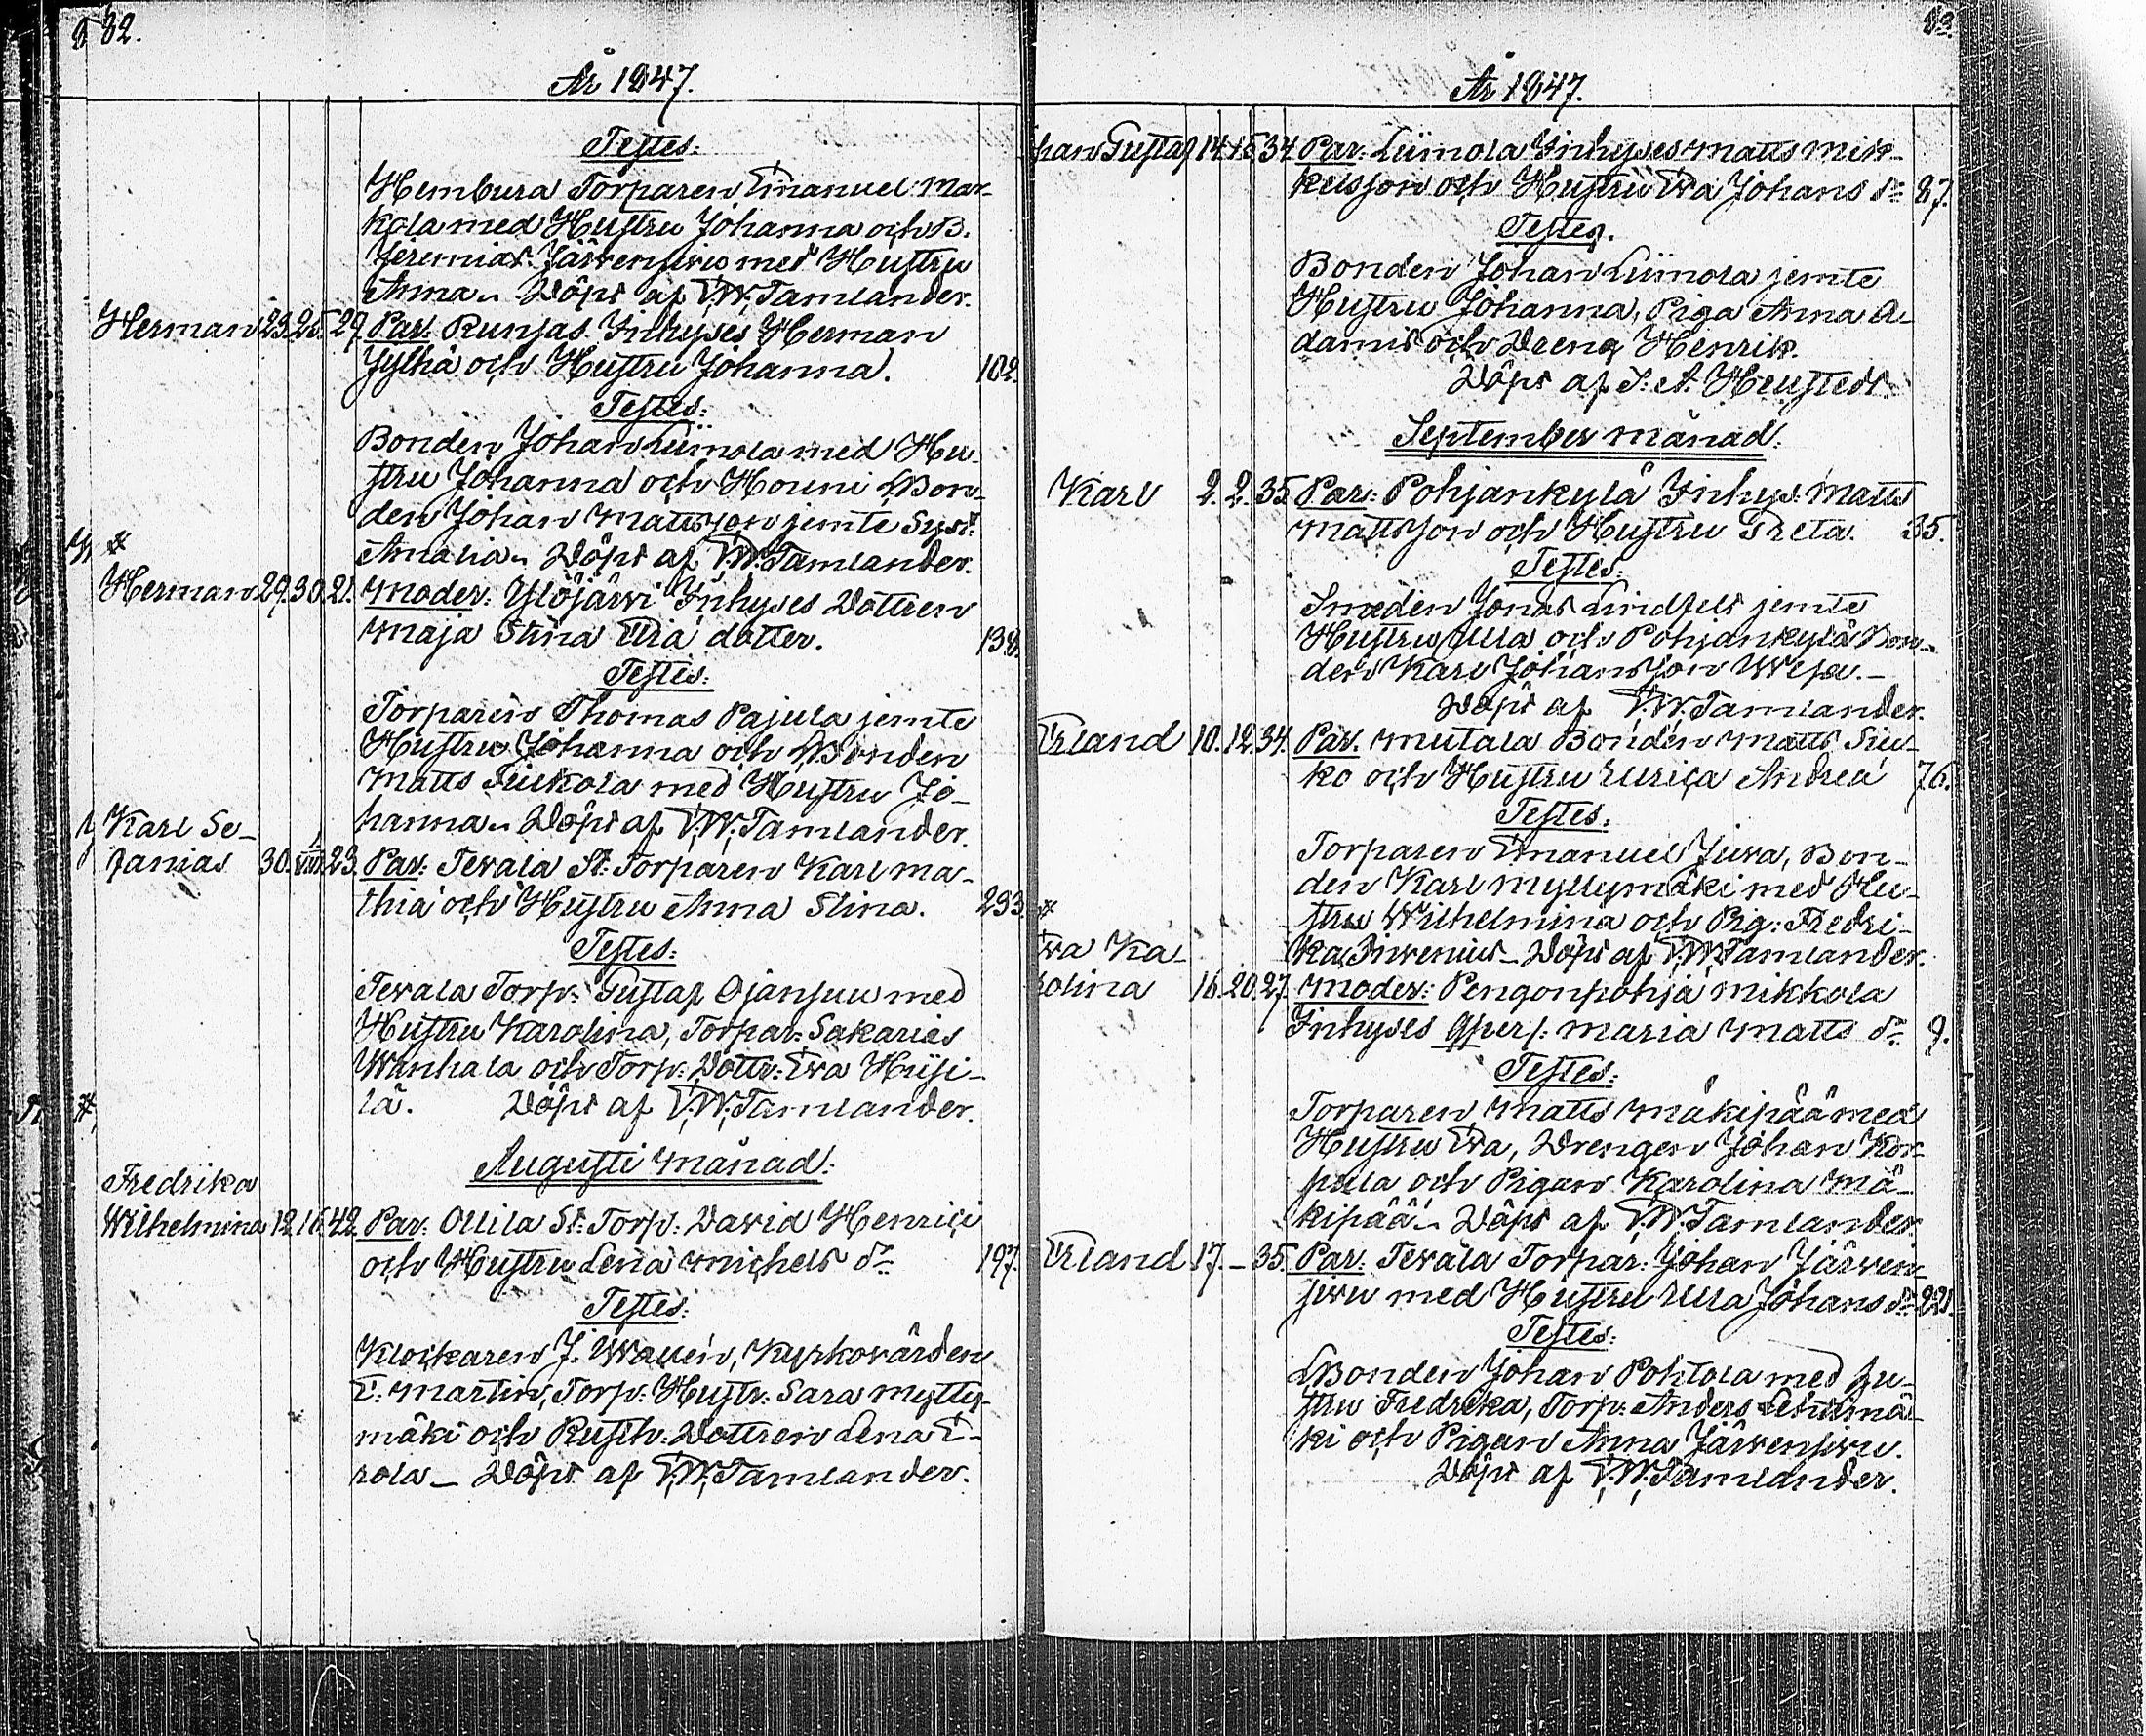 82.
År 1847.
Testes:
Hembura Torparen Emanuel Mar-
kola med Hustru Johanna och B.
Jeremias Järvensivu med Hustru
Anna. Döpt af V. W. Tamlander.
Herman 23. 25. 29. Par. Runsas Inhyses Herman
Jylhä och Hustru Johanna. 102.
Testes:
Bonden Johan Liimola med Hu-
stru Johanna och Houni Bon-
den Johan Mattsson jemte Syst:
Amalia. Döpt af V. W. Tamlander.
Herman 29. 30. 21. Moder: Ylöjärvi Inhyses Dottren
Maja Stina dotter. 138.
Testes:
Torparen Thomas Pajula jemte
Hustru Johanna och Bonden
Matts Siukola med Hustru Jo-
hanna. Döpt af V. W. Tamlander.
Karl Se-
fanias 30. 23. Par: Tevala St: Torparen Karl Ma-
thiæ och Hustru Anna Stina. 233.
Testes:
Tevala Torp: Gustaf Ojansuu med
Hustru Karolina, Torpar: Sakarias
Wanhala och Torp: Dottr: Eva Hiisi-
lä. Döpt af V. W. Tamlander.
Augusti månad:
Fredrika
Wilhelmina 12. 16. 42. Par: Ollila St: Torp: David Henrici
och Hustru Lena Michels dr 197.
Testes:
Klockaren J. Wallein, Kyrkovärden
E. Martin, Torp: Hustr: Sara Mylly-
mäki och Rusth: Dottren Lena E-
rola. Döpt af V. W. Tamlander.
83.
År 1847.
han Gustaf 14. 15. 34. Par: Liimola Inhyses Matts Mik-
kelsson och Hustru Eva Johans dr 87.
Testes.
Bonden Johan Liimola jemte
Hustru Johanna, Piga Anna A-
dams och Dreng Henrik.
Döpt af
September månad.
Karl 2. 2. 35. Par: Pohjankylä Inhys: Matts
Mattsson och Hustru Greta. 35.
Testes:
Smeden Jonas Lindfelt jemte
Hustru Ulla och Pohjankylä Bon-
den Karl Johansson Wesa.
Döpt af V. W. Tamlander.
Erland 10. 12. 34. Par. Mutala Bonden Matts Siu-
ko och Hustru Ulrica Andreæ 76.
Testes:
Torparen Emanuel Juva, Bon-
den Karl Myllymäki med Hu-
stru Wilhelmina och Pig: Fredri-
ka Juvenius. Döpt af V. W. Tamlander.
Eva Ka-
rolina 16. 20. 27. Moder: Pengonpohja Mikkola
Inhyses Qspers: Maria Matts dr 9.
Testes:
Torparen Matts Mäkipää med
Hustru Eva, Drengen Johan Kor-
pula och Pigan Karolina Mä-
kipää. Döpt af V. W. Tamlander.
Erland 17. – 35. Par: Tevala Torpar: Johan Järven-
sivu med Hustru Ulla Johans dr 221.
Testes:
Bonden Johan Pohtola med Hu-
stru Fredrika, Torp: Anders Lehtimä-
ki och Pigan Anna Järvensivu.
Döpt af V. W. Tamlander.